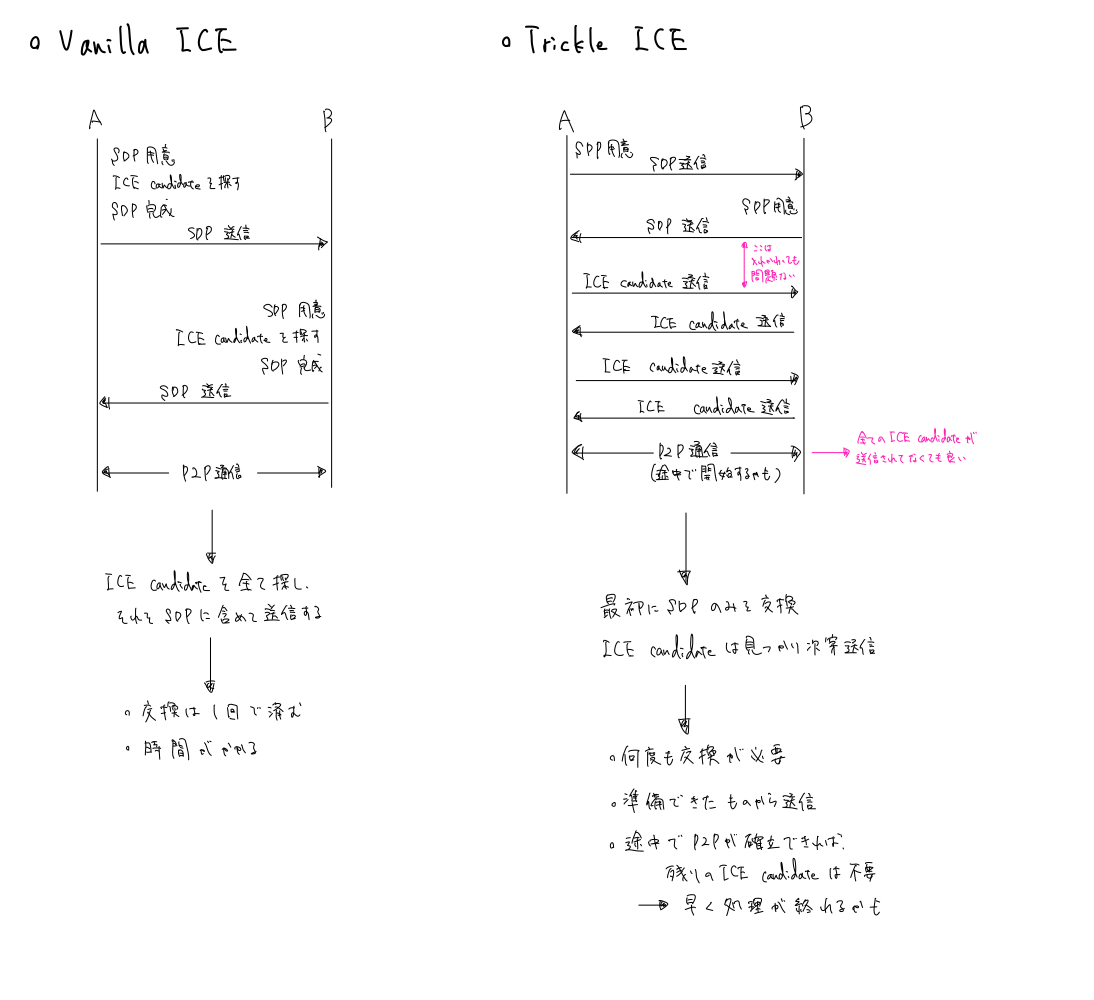 。Vanilla ICE
A
B
SDP用意
ICE candidateを探す
SDP完成
SDP 送信
SDP 用意
ICE candidateを探す
SDP 完成
SDP 送信
P2P通信
ICE candidateを全て探し、
それをSDPに含めて送信する
。交換は1回で済む
。時間がかかる
。Trickle ICE
A
B
SDP用意
SDP送信
SDP用意
SDP 送信
ここは
入れかわっても
問題ない
ICE candidate 送信
ICE candidate 送信
ICE candidate 送信
ICE candidate 送信
P2P通信
(途中で開始するかも)
全てのICE candidateが
送信されてなくても良い
最初にSDPのみを交換
ICE candidateは見つかり次第送信
。何度も交換が必要
。準備できたものから送信
。途中でP2Pが確立できれば、
残りのICE candidateは不要
→ 早く処理が終れるかも